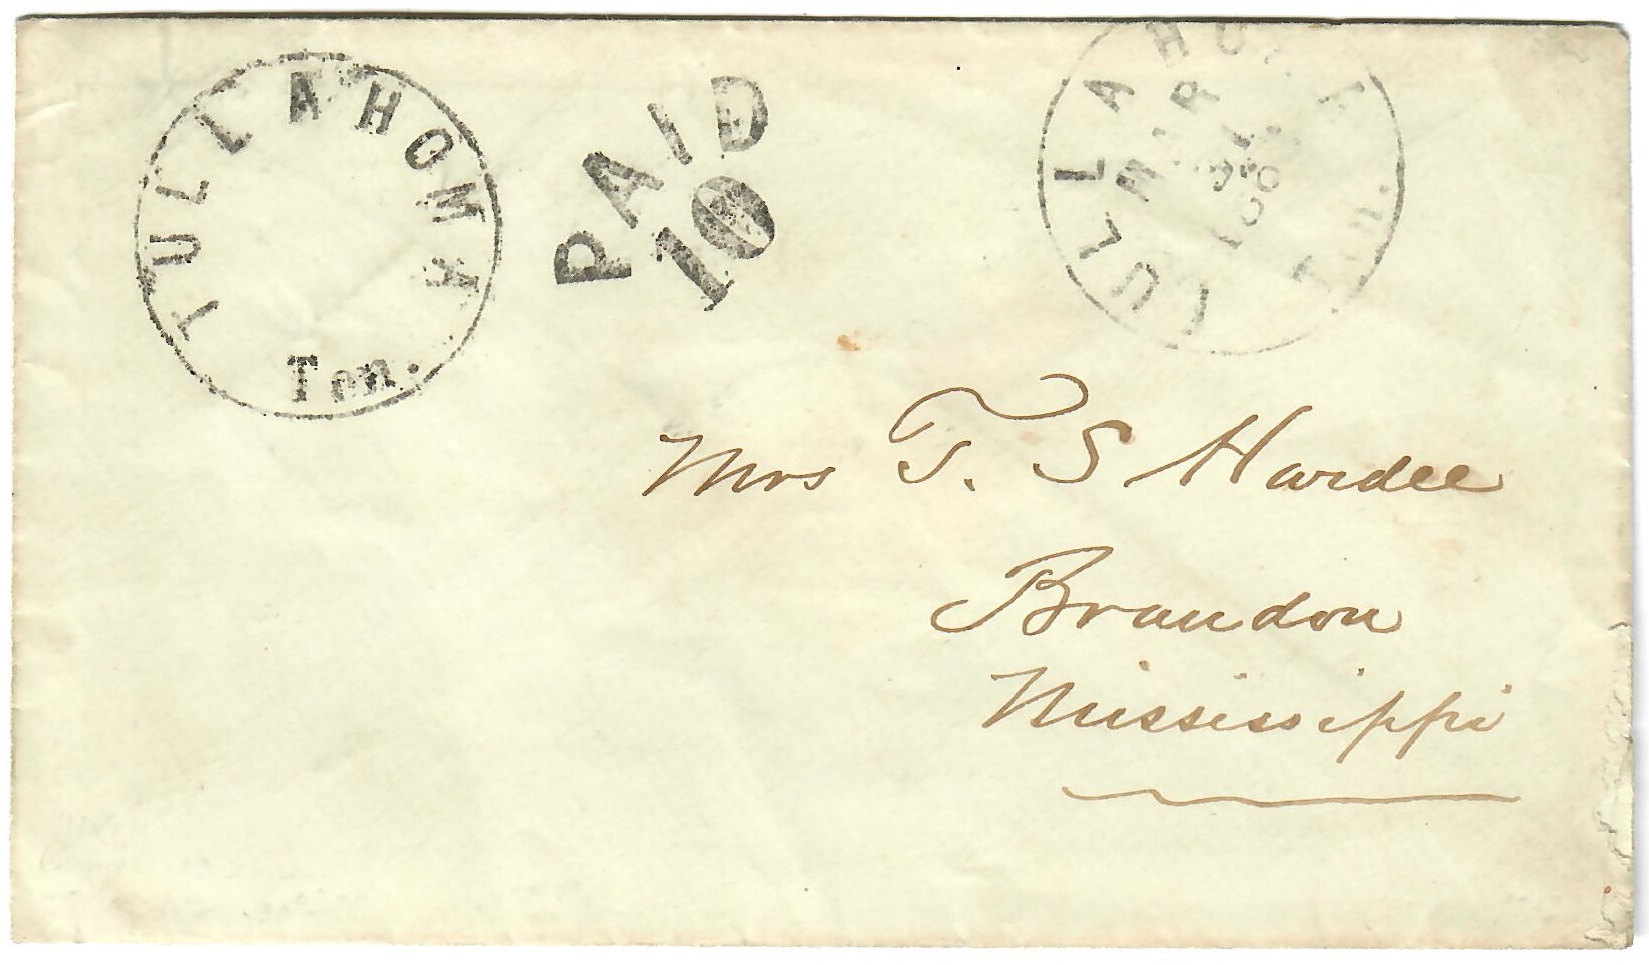 TULLAHOMA
Ten.
PAID
10
TULLAHOMA
MAR
Ten.
Mrs T. S Hardee
Brandon
Mississippi